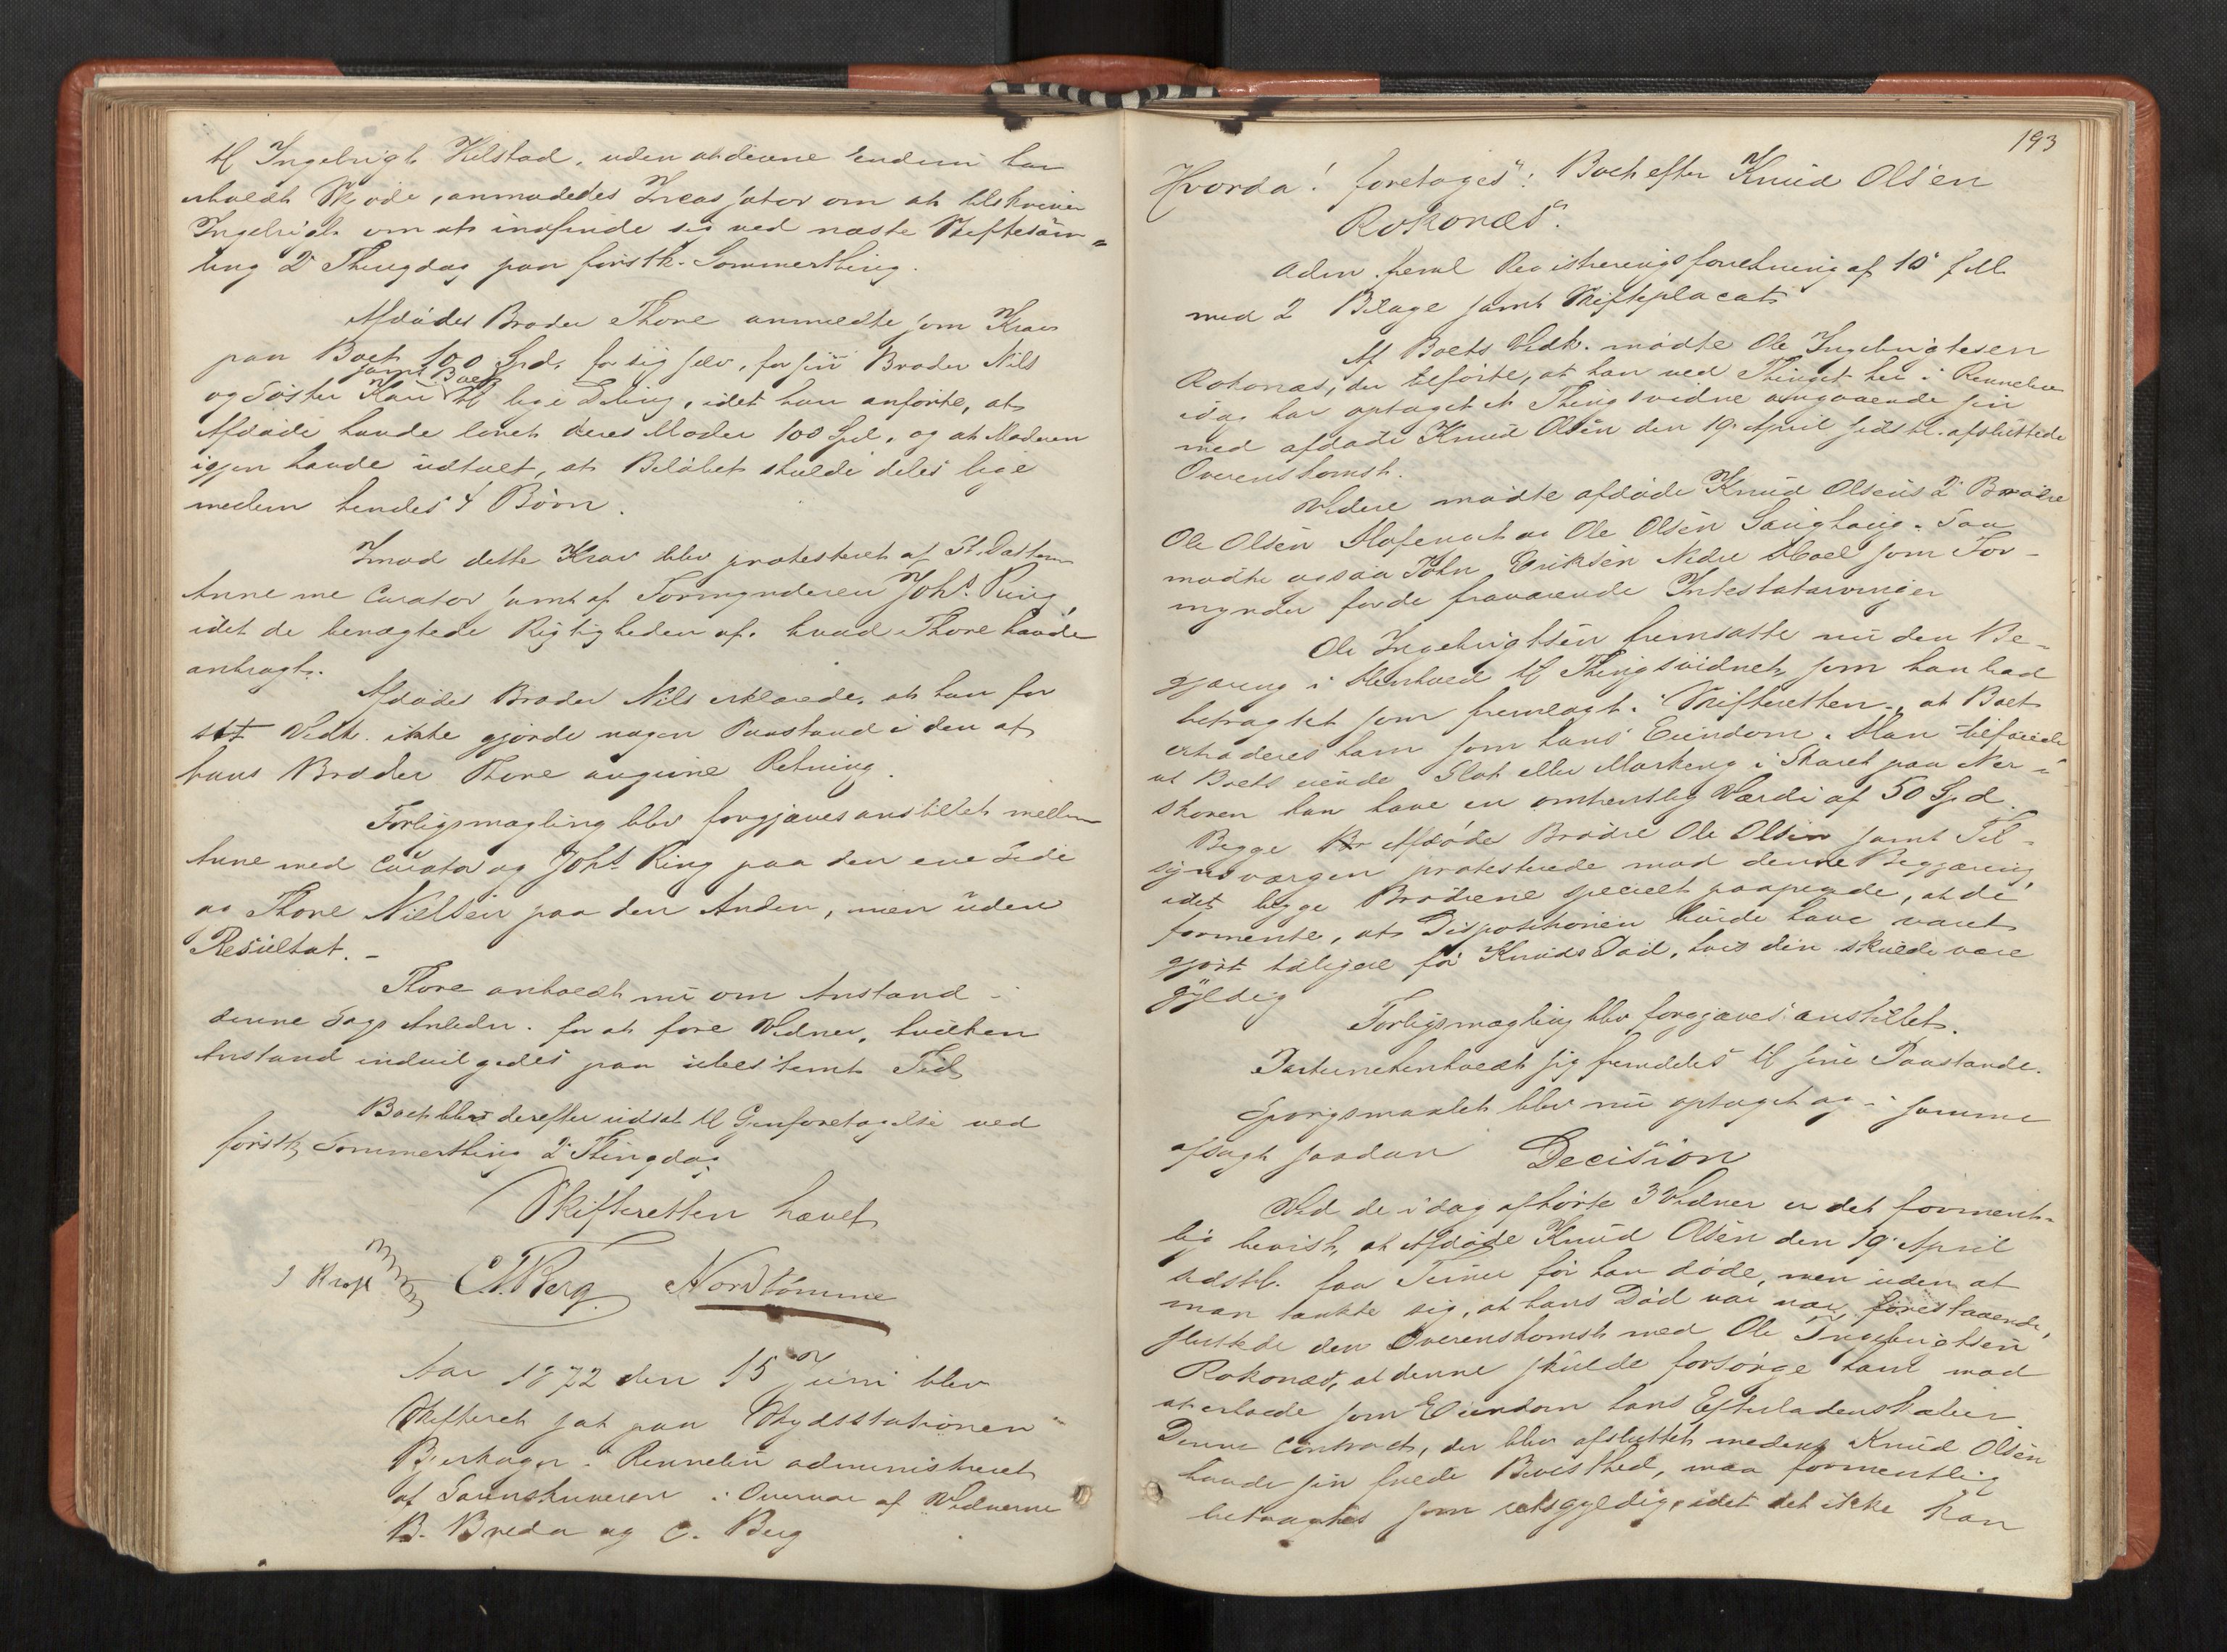 til Ingebrigt Kilstad, uden at denne endnu har
erholdt Skjøde, anmodedes Incassator om at tilskrive
Ingebrigt om at indfinde sig ved næste Skiftesam=
ling 2 Thingdag paa førstk. Sommerthing.
Afdødes Broder Thore anmeldte som Krav
paa Boet 100 Spd. for sig selv, for sin Broder Nils
og Søster Kari samt Boet til lige Deling, idet han anførte, at
Afdøde havde laant deres Moder 100 Spd, og at Moderen
igjen havde udtalt, at Beløbet skulde deles lige
mellem hendes 4 Børn.
Imod dette Krav blev protesteret af
Anne m Curator samt af Formynderen Johs. Ring,
idet de benægtede Rigtigheden af hvad Thore havde
anbragt.
Afdødes Broder Nils erklærede, at han for
sit Vedk. ikke gjorde nogen Paastand i den af
hans Broder Thore angivne Retning.
Forligsmægling blev forgjæves anstillet mellem
Anne med Curator og Johs. Ring paa den ene Side
og Thore Nielsen paa den Anden, men uden
Resultat. -
Thore anholdt nu om Anstand i
denne Sags Anledn. for at føre Vidner, hvilken
Anstand indvilgedes paa ubestemt Tid
Boet blev derefter udsat til Genforetagelse ved
førstk Sommerthing 2 Thingdag
Skifteretten hævet
C. Berg. Nordtømme
Aar 1872 den 15 Juni blev
Skifteret sat paa Skydsstationen
Bjerkager i Rennebu administreret
af Sorenskriveren i Overvær af Vidnerne
B. Breda og C. Berg
193
Hvorda! foretoges: Boet efter Knud Olsen
Rokonæs.
aden freml Registreringsforretning af 10 f M.
med 2 Bilage samt Skifteplacat
Af Boets Vedk. mødte Ole Ingebrigtsen
Rokonæs, der tilførte, at han ved Thinget her i Rennebu
idag har optaget et Thingsvidne angaaende sin
med afdøde Knud Olsen den 19 April sidstl. afsluttede
Overenskomst.
Videre mødte afdøde Knud Olsens 2 Brødre
Ole Olsen og Ole Olsen Saughaug. Saa
mødte ogsaa John Eriksen Nedre Hoel som For-
mynder for de fraværende Intestatarvinger
Ole Ingebrigtsen fremsatte nu den Be-
gjæring i Henhold til Thingsvidnet, som han bad
betragtet som fremlagt i Skifteretten, at Boet
extraderes ham som hans Eiendom. Han tilføiede
at Boets eiende Slot eller Markeng i Skaret paa Ner-
skoven kan have en omtrentlig Værdi af 50 Spd.
Begge Br Afdøde Brødre Ole Olsen samt Til-
synsværgen protesterede mod denne Begjæring,
idet begge Brødrene specielt paapegede, at de
formente, at Dispositionen burde have været
gjort tidligere før Knuds Død, hvis den skulde være
gyldig
Forligsmægling blev forgjæves anstillet.
Parterne henholdt sig fremdeles til sine Paastande.
Spørgsmaalet blev nu optaget og i samme
afsagt saadan Decision
Ved de i dag afhørte 3 Vidner er det forment-
lig bevist, at Afdøde Knud Olsen den 19 April
sidstl. faa Timer før han døde, men uden at
man tænkte sig, at hans Død var nær forestaaende,
sluttede den Overenskomst med Ole Ingebrigtsen
Rokonæs, at denne skulde forsørge ham mod
at erholde som Eiendom hans Efterladenskaber.
Denne Contract, der blev afsluttet medens Knud Olsen
havde sin fulde Bevisthed, maa formentlig
betragtes som retsgyldig, idet det ikke kan